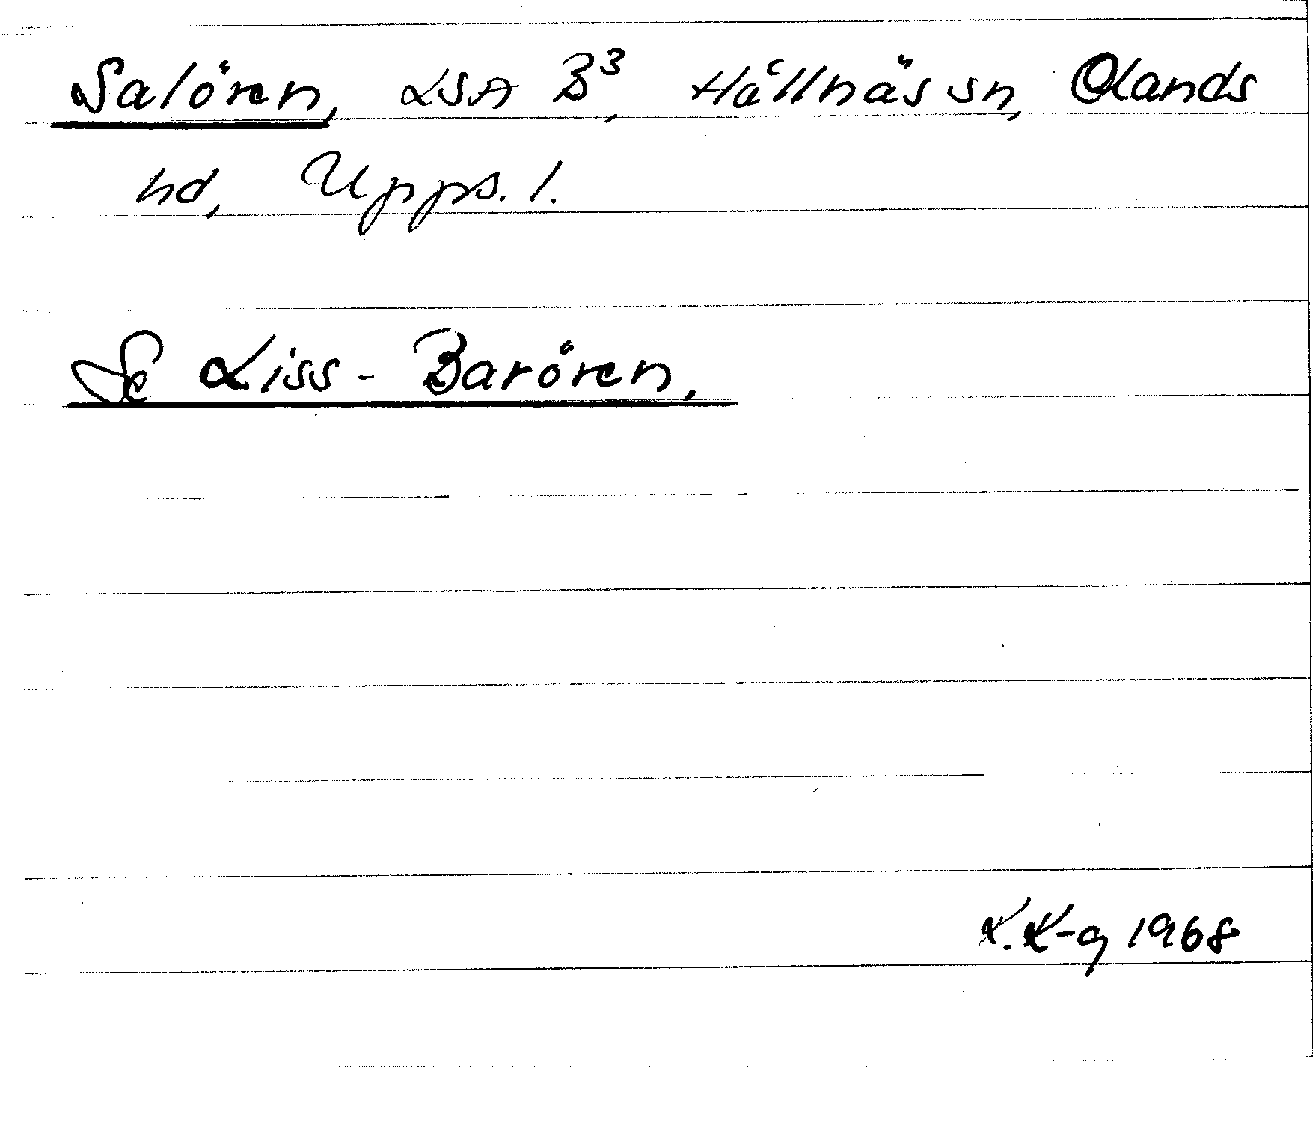 Salören, LSA B³, Hållnäs sn, Olands
hd, Upps. l.
Se Liss-Barören.
K. K-g 1968